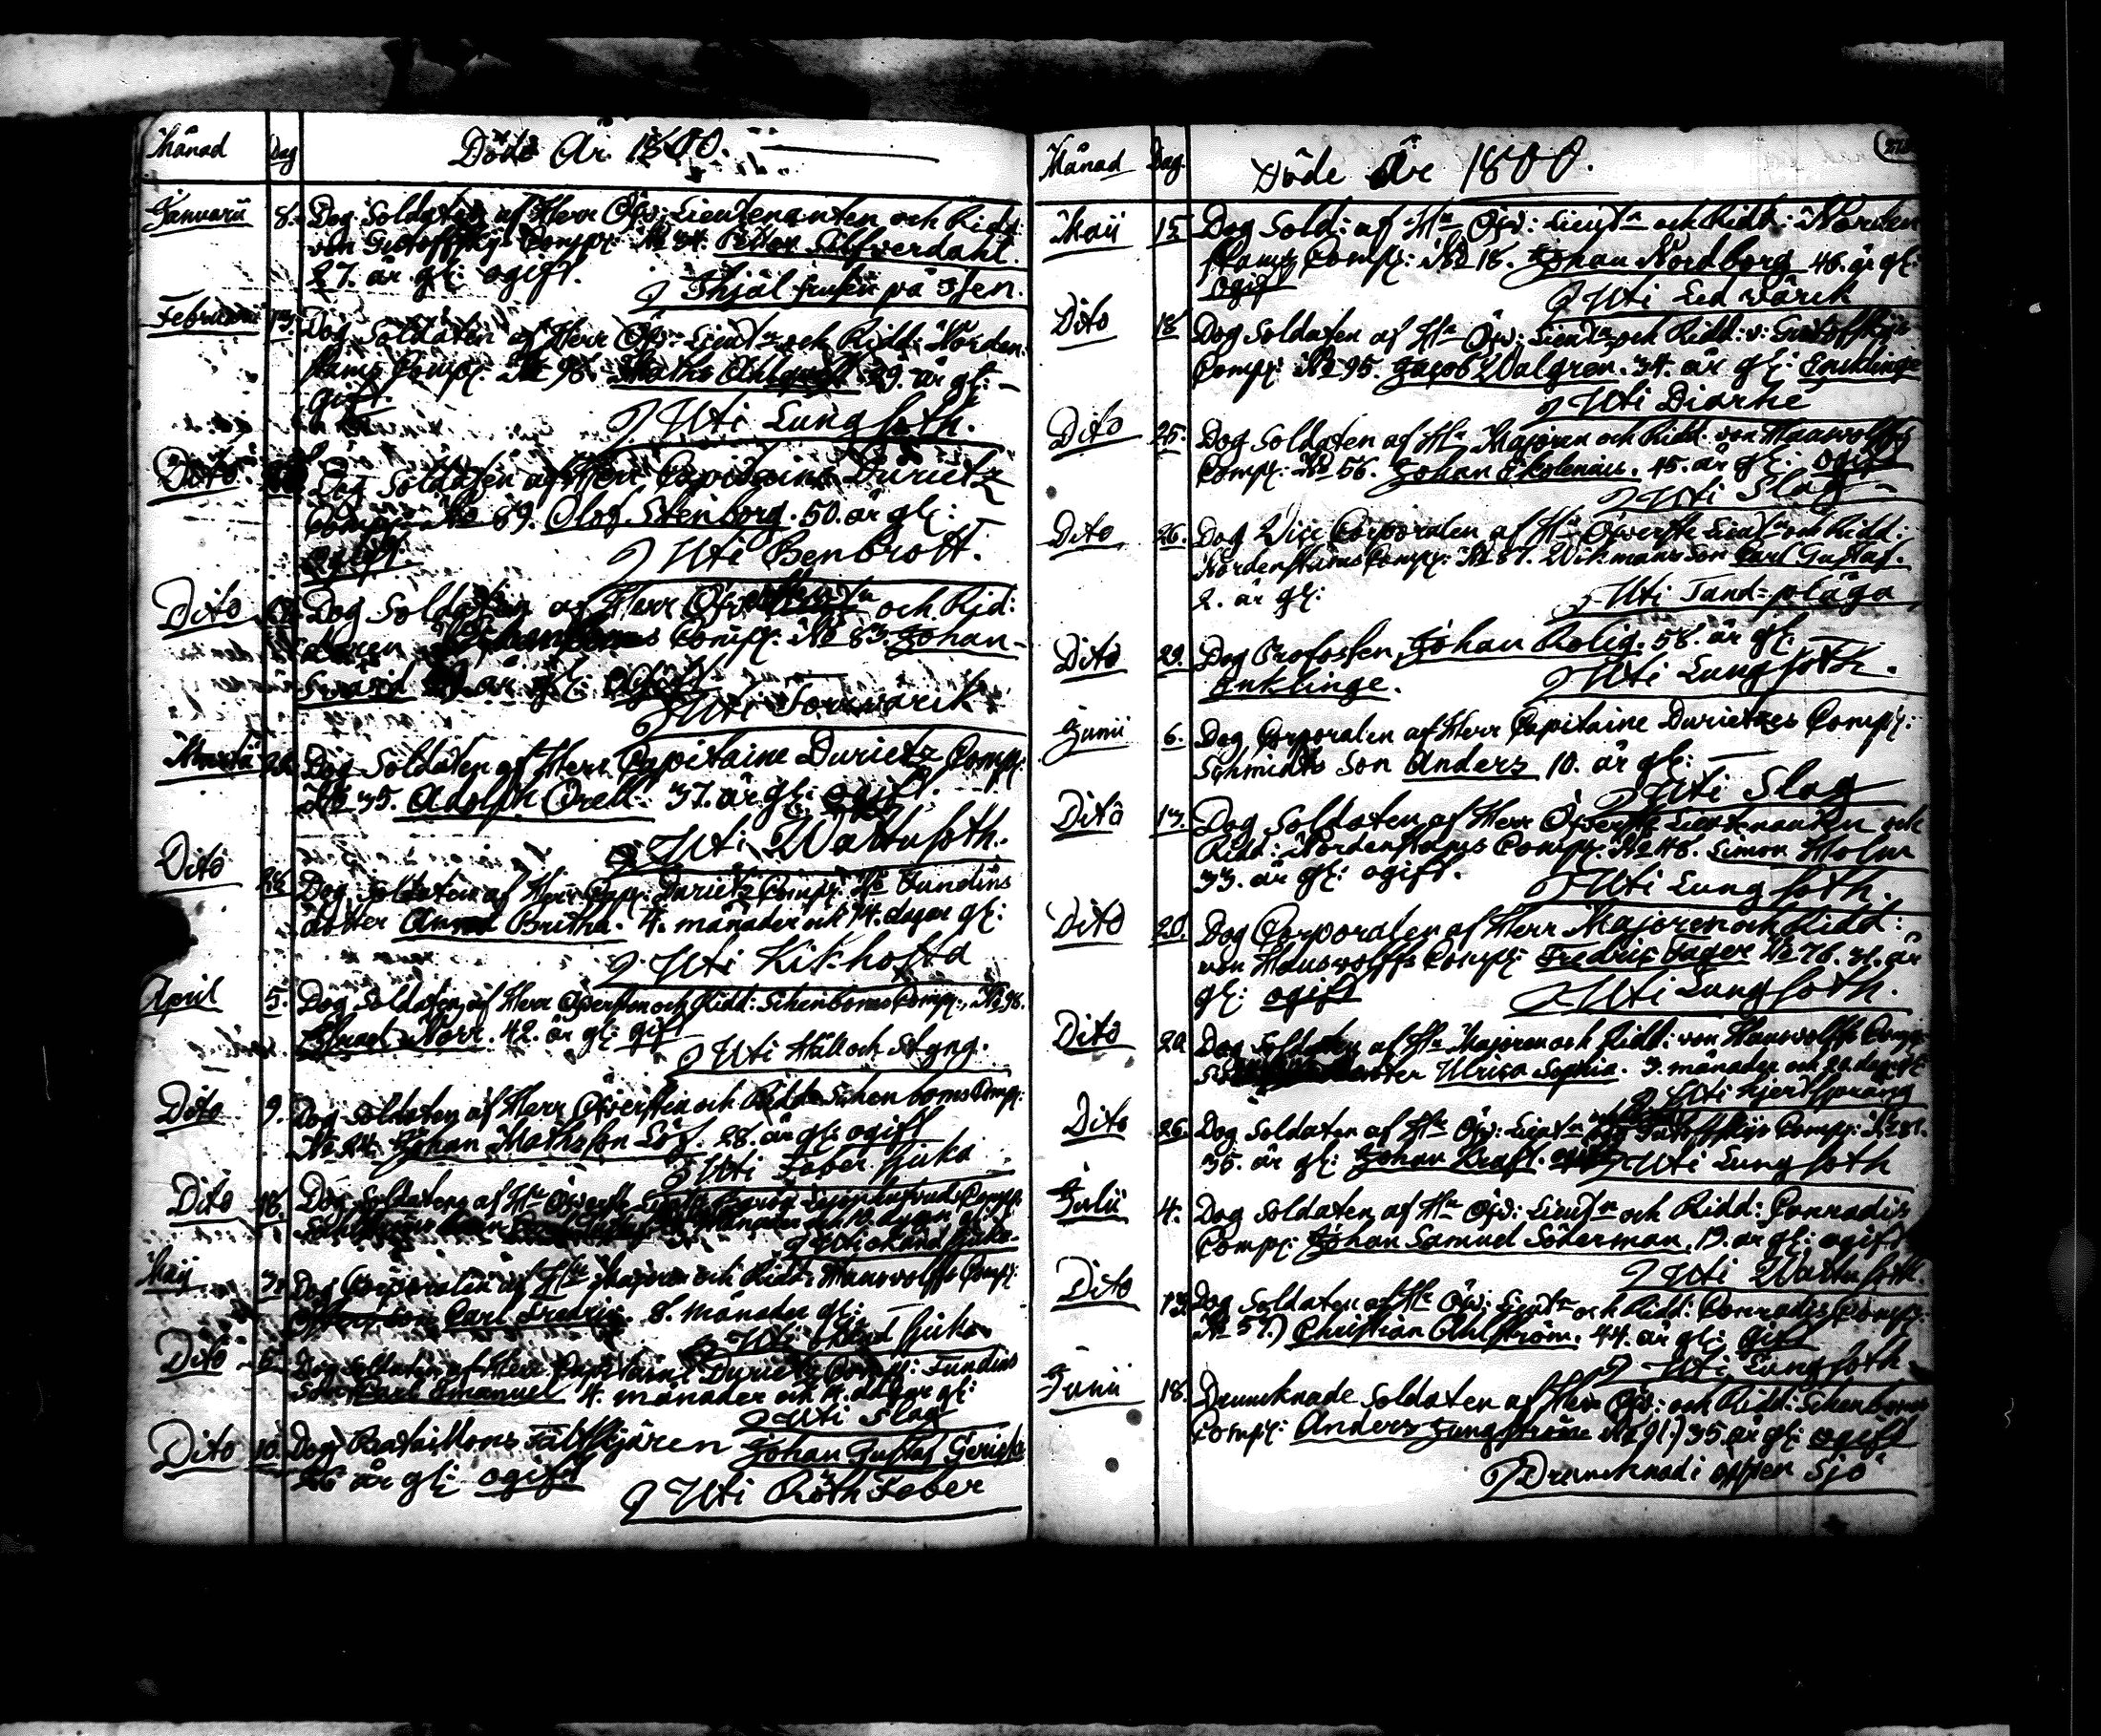 Månad Dag Döde År 1800.
Januarii 8. Dog Soldaten af Herr Öfv: Lieutenanten och Ridd:
von Gertoffskys Comp: No 34. Petter Silfverdahl.
27. år gl: ogift.
Ihjäl frusen på Isen.
Februarii 13. Dog Soldaten af Herr Öfv: Lieutn och Ridd: Norden-
skams Comp: No 98. Maths Ahlqvist 29. år gl:
gift.
Uti Lungsoth.
Dito Dog Soldaten af Herr Capitaine Durietz
Comp: No 89. Olof Stenborg. 50. år gl:
Ogift.
Uti Benbrott.
Dito Dog Soldaten af Herr Öfv och Rid:
daren Comp: No 83. Johan
Swärd år gl: ogift
Uti Torrwärk.
Martii Dog Soldaten af Herr Capitaine Durietz Comp:
No 35. Adolph Orell. 37. år gl: ogift.
Uti Wattusoth.
Dito 28 Dog Soldaten af Herr Cap: Durietz Comp: No Fundins
dotter Anna Britha. 4. månader och 14. dagar gl:
Uti Kikhosta
April 5. Dog Soldaten af Herr Öfversten och Ridd: Schenboms Comp: No 98.
Norr. 42. år gl: gift
Uti Håll och Styng.
Dito 9. Dog Soldaten af Herr Öfversten och Ridd: Schenboms Comp:
No 24. Johan Mathsson Löf. 28. år gl: ogift
Uti Feber sjuka
Dito 18. Dog Soldatens af Hr Öfverste Comp:
månader och 10. dagar gl:
Uti okänd sjuka
Maij 3. Dog Corporalen af Hr Majoren och Ridd: Hauswolffs Comp:
son Carl Fredric. 8. månader gl:
Uti okänd sjuka
Dito 6. Dog Soldaten af Herr Capitaine Durietz Comp: Fundins
Son Carl Emanuel 4. månader och 14. dagar gl:
Uti Slag
Dito 10. Dog Bataillons Fältskjären Johan Gustaf
26 år gl: ogift
Uti Röth Feber
Månad Dag. Döde År 1800.
Maii 15 Dog Sold: af Hr Öfv: Lieutn och Ridd: Norden
skams Comp: No 18. Johan Nordborg 46. år gl:
ogift
Uti Led wärck
Dito 18 Dog Soldaten af Hr Öfv: Lieutn och Ridd: v: Gertoffskys
Comp: No 95. Jacob Walgren. 34. år gl: Enklinge
Uti Diarhé
Dito 25. Dog Soldaten af Hr Majoren och Ridd: von Hauswolffs
Comp: No 56. Johan Ekolenius. 45. år gl: ogift
Uti Slag
Dito 26. Dog Vice Corporalen af Hr Öfverste Lieutn och Ridd:
Nordenskams Comp: No 87. Wikmans Son Carl Gustaf.
2. år gl:
Uti Tand-plåga
Dito 29. Dog Profossen Johan Rolig. 58. år gl:
Enklinge.
Uti Lungsoth.
Junii 6. Dog Corporalen af Herr Capitaine Durietzes Comp:
Schmidts Son Anders 10. år gl:
Uti Slag
Dito 13. Dog Soldaten af Herr Öfverste Lieutenanten och
Ridd: Nordenskams Comp: No 48. Simon Holm
33. år gl: ogift.
Uti Lungsoth.
Dito 20. Dog Corporalen af Herr Majoren och Ridd:
von Hauswolffs Comp: Fredric Fager No 76. 31. år
gl: ogift
Uti Lungsoth.
Dito 20 Dog Soldaten af Hr Majoren och Ridd: von Hauswolffs Comp:
dotter Ulrica Sophia. 3. månader och 20 dagar gl:
Uti Hjertsprång
Dito 26. Dog Soldaten af Hr Öfv: Lieutn Gertoffskys Comp: No 81.
35. år gl: Johan Kraft. Uti Lungsoth
Julii 4. Dog Soldaten af Hr Öfv: Lieutn och Ridd: Conradis
Comp: Johan Samuel Söderman. 19. år gl: ogift
Uti Wattusoth.
Dito 13. Dog Soldaten af Hr Öfv: Lieutn och Ridd: Conradis Comp:
No 57.) Christian Ahlström. 44. år gl: Gift
Uti Lungsoth
Junii 18. Druncknade Soldaten af Herr Öfv: och Ridd: Schenboms
Comp: Anders Ljungström No 91.) 35. år gl: ogift
Drunknad i öppen Sjö